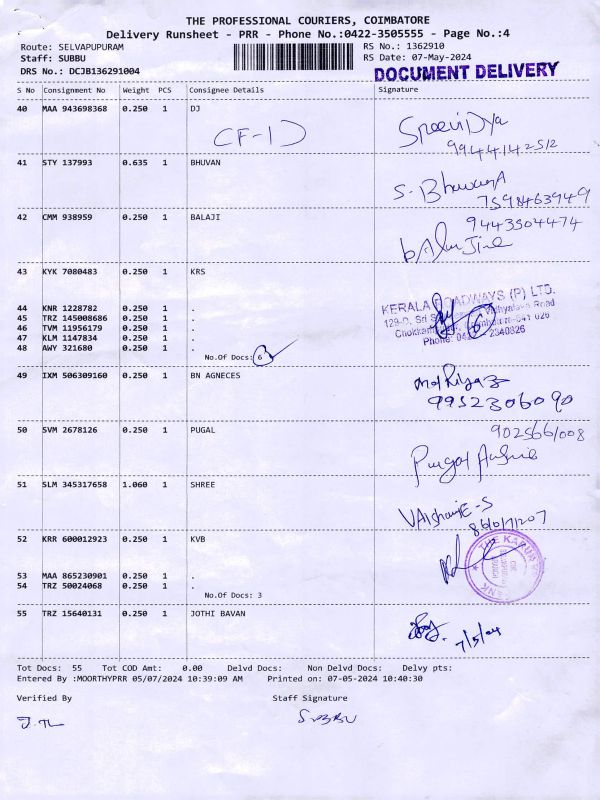 THE PROFESSIONAL COURIERS, COIMBATORE
Delivery Runsheet - PRR - Phone No.:0422-3505555 - Page No.:4
Route: SELVAPUPURAM RS No.: 1362910
Staff: SUBBU RS Date: 07-May-2024
DRS No.: DCJB136291004 DOCUMENT DELIVERY
S No Consignment No Weight PCS Consignee Details Signature
40 MAA 943698368 0.250 1 DJ
CF-1D
9944142512
41 STY 137993 0.635 1 BHUVAN
S. Bhuvan
7598463949
42 CMM 938959 0.250 1 BALAJI 9443504474
43 KYK 7080483 0.250 1 KRS
KERALA ROADWAYS (P) LTD.
44 KNR 1228782 0.250 1 .
45 TRZ 145008686 0.250 1 .
46 TVM 11956179 0.250 1 .
47 KLM 1147834 0.250 1 .
48 AWY 321680 0.250 1 .
No.Of Docs: 6
49 IXM 506309160 0.250 1 BN AGNECES
9952306090
50 SVM 2678126 0.250 1 PUGAL
51 SLM 345317658 1.060 1 SHREE
52 KRR 600012923 0.250 1 KVB
53 MAA 865230901 0.250 1 .
54 TRZ 50024068 0.250 1 .
No.Of Docs: 3
55 TRZ 15640131 0.250 1 JOTHI BAVAN
7/5/24
Tot Docs: 55 Tot COD Amt: 0.00 Delvd Docs: Non Delvd Docs: Delvy pts:
Entered By :MOORTHYPRR 05/07/2024 10:39:09 AM Printed on: 07-05-2024 10:40:30
Verified By Staff Signature
SUBBU